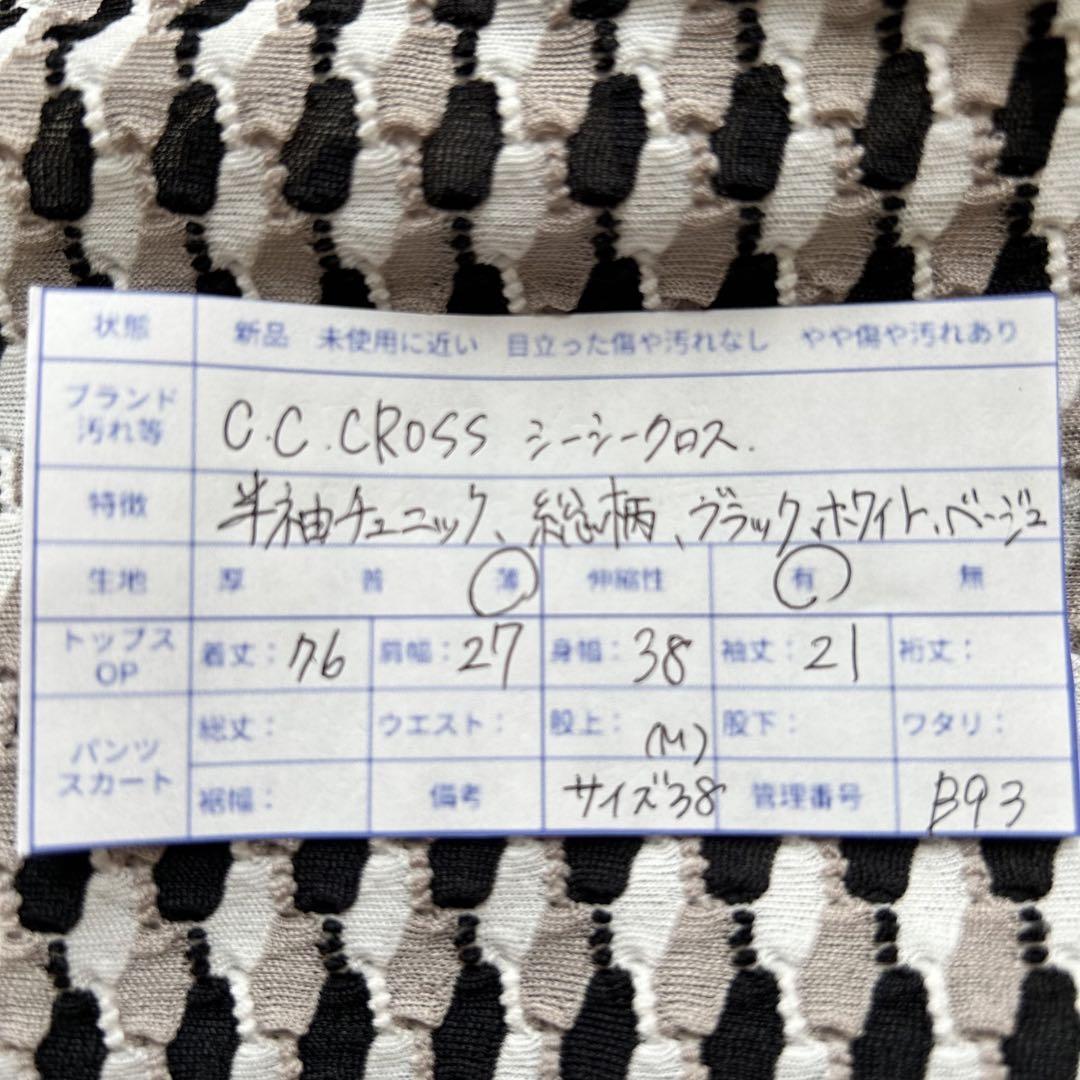 状態 新品 未使用に近い 目立った傷や汚れなし やや傷や汚れあり
ブランド
汚れ等 C.C.CROSS シーシークロス.
特徴 半袖チュニック、総柄、ブラック、ホワイト、ベージュ
生地 厚 普 薄 伸縮性 有 無
トップス
OP 着丈: 76 肩幅: 27 身幅: 38 袖丈: 21 裄丈:
パンツ
スカート 総丈: ウエスト: 股上: 股下: ワタリ:
(M)
裾幅: 備考 サイズ38 管理番号 B93